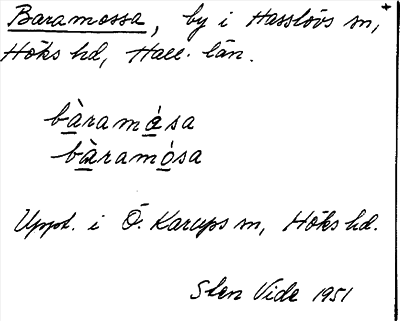 Baramossa, by i Hasslövs sn, +
Höks hd, Hall. län.
bàramåsa
bàramósa
Uppt. i Ö. Karups sn, Höks hd.
Sten Vide 1951